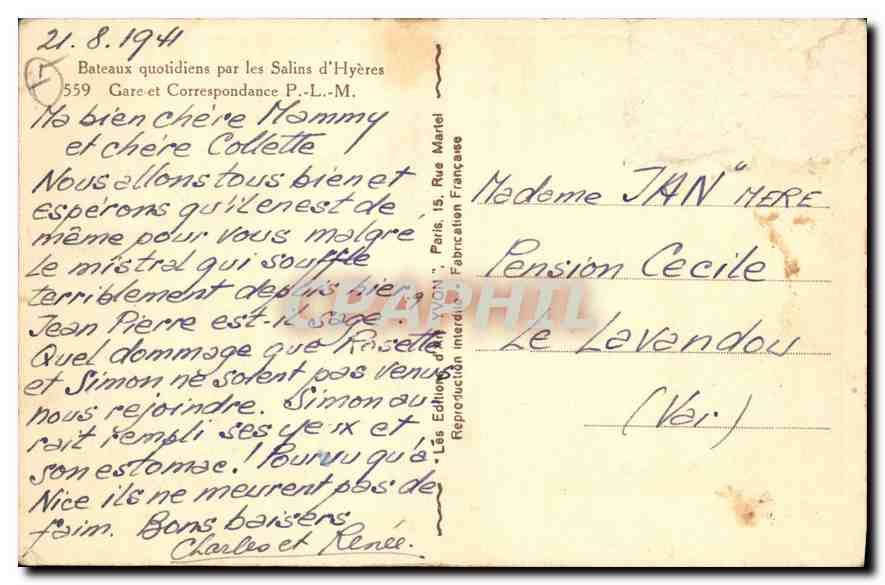 21.8.1941
Bateaux quotidiens par les Salins d'Hyères
559 Gare et Correspondance P.-L.-M.
Ma bien chére Mammy
et chére Collette
Nous allons tous bien et
espérons qu'il en est de
même pour vous malgré
le mistral qui souffle
terriblement depuis hier.
Jean Pierre est-il sage ?
Quel dommage que Rosette
et Simon ne soient pas venus
nous rejoindre. Simon au-
rait rempli ses yeux et
son estomac ! Pourvu qu'à
Nice ils ne meurent pas de
faim. Bons baisers
Charles et Renée.
"Les Editions d'Art YVON", Paris, 15, Rue Martel
Reproduction interdite Fabrication Française
Madame JAN" MERE
Pension Cecile
Le Lavandou
(Var)
CPAPHIL